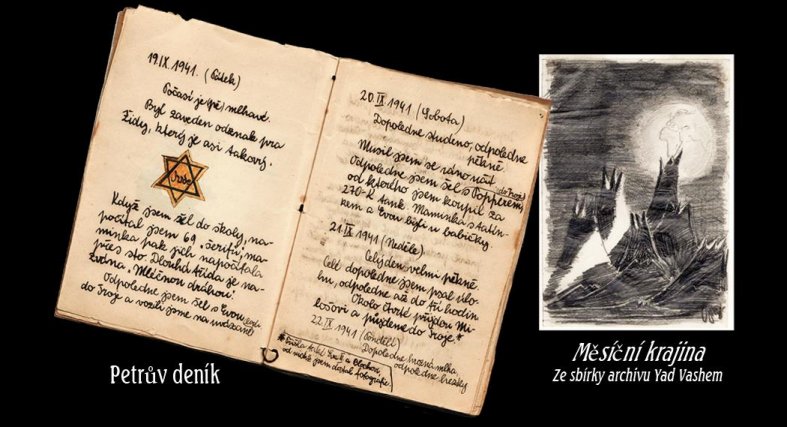 19.IX.1941. (Pátek)
Počasí je mlhavé.
Byl zaveden odznak pro
Židy, který je asi takový.
Když jsem šel do školy, na-
počítal jsem 69 „šerifů“, ma-
minka pak jich napočítala
přes sto. Dlouhá třída je na-
zvána „Mléčnou dráhou“.
Odpoledne jsem šel s Evou
do Troje a vozili jsme na
20.IX 1941 (Sobota)
Dopoledne studeno, odpoledne
pěkně.
Musil jsem se ráno učit
Odpoledne jsem šel s Popperem, (do Troje)
od kterého jsem koupil za
270 K tank. Maminka s tatín-
kem a Evou byli u babičky.
21.IX 1941 (Neděle)
Celý den velmi pěkně.
Celé dopoledne jsem psal úlo-
hu, odpoledne až do tří hodin
Okolo čtvrté přijdou Mi-
a půjdeme do Troje.*
22.IX 1941 (Pondělí)
Dopoledne mlha,
odpoledne hezky
* a
od nichž jsem dostal fotografie
Petrův deník
Měsíční krajina
Ze sbírky archívu Yad Vashem